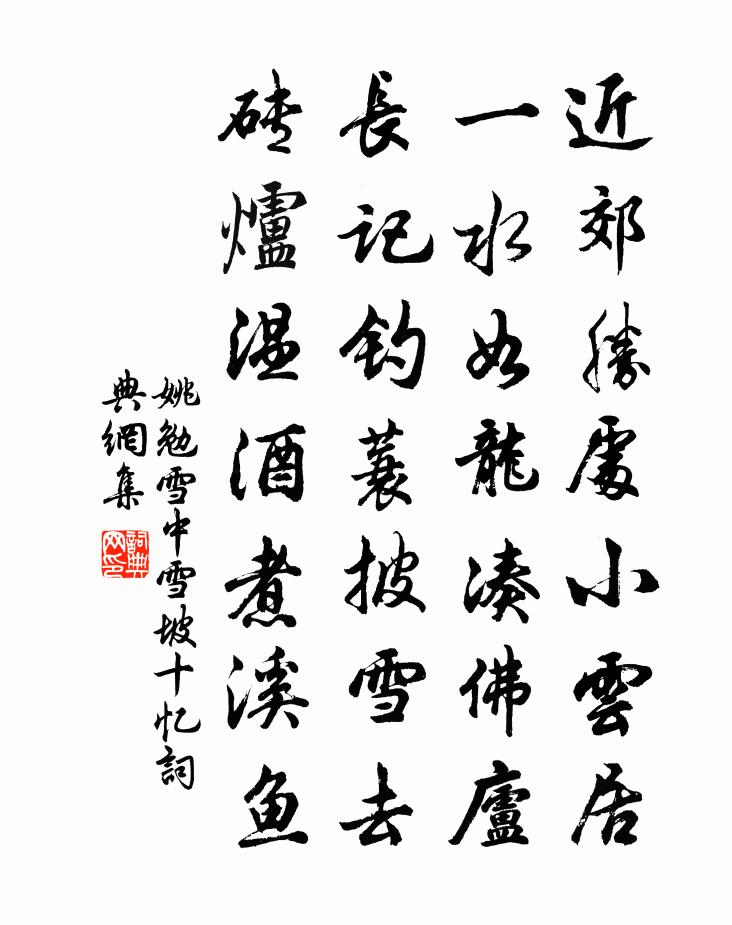 近郊勝處小雲居
一水如龍湊佛廬
長記釣蓑披雪去
磚爐温酒煮溪鱼
姚勉雪中雪坡十忆詞
典網集
詞典网印